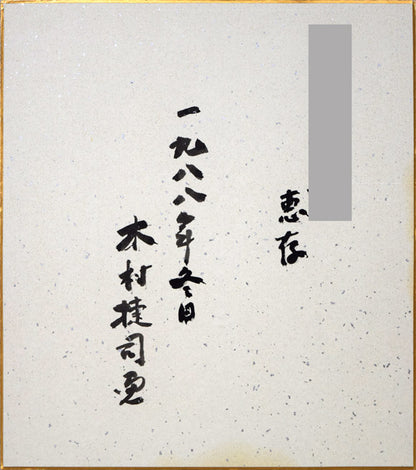 恵存
一九八八年冬日
木村捷司